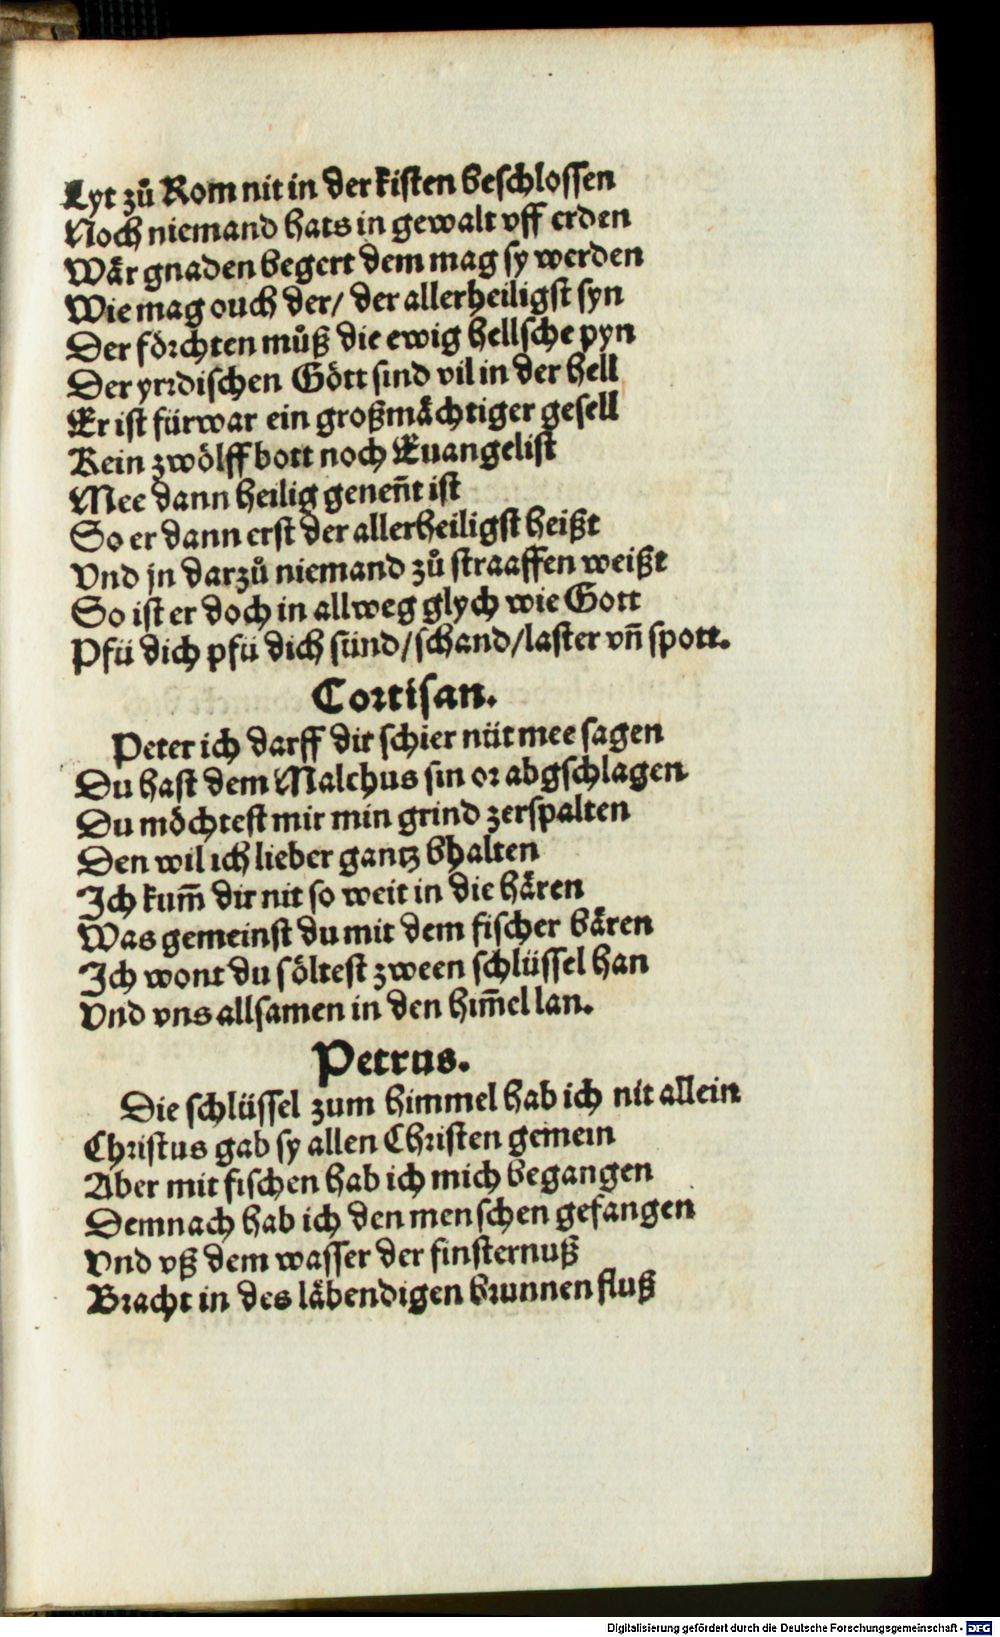 Lyt zuͦ Rom nit in der kisten beschlossen
Noch niemand hats in gewalt vff erden
Wär gnaden begert dem mag sy werden
Wie mag ouch der/ der allerheiligst syn
Der förchten muͦß die ewig hellsche pyn
Der yrrdischen Gött sind vil in der hell
Er ist fürwar ein großmächtiger gesell
Kein zwölffbott noch Euangelist
Mee dann heilig geneñt ist
So er dann erst der allerheiligst heißt
Vnd jn darzuͦ niemand zuͦ straaffen weißt
So ist er doch in allweg glych wie Gott
Pfü dich pfü dich sünd/schand/laster vñ spott.
Cortisan.
Peter ich darff dir schier nüt mee sagen
Du hast dem Malchus sin or abgschlagen
Du möchtest mir min grind zerspalten
Den wil ich lieber gantz bhalten
Ich kum̄ dir nit so weit in die hären
Was gemeinst du mit dem fischer bären
Ich wont du söltest zween schlüssel han
Vnd vns allsamen in den him̄el lan.
Petrus.
Die schlüssel zum himmel hab ich nit allein
Christus gab sy allen Christen gemein
Aber mit fischen hab ich mich begangen
Demnach hab ich den menschen gefangen
Vnd vß dem wasser der finsternuß
Bracht in des läbendigen brunnen fluß
Digitalisierung gefördert durch die Deutsche Forschungsgemeinschaft - DFG